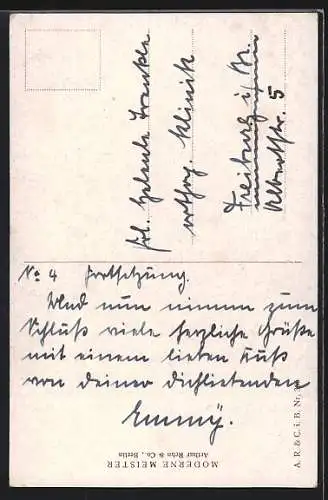 Frl. Helente Trenkle
orthop. Klinik
Freiburg i/ Br.
Albertstr. 5
No 4 Fortsetzung.
Und nun nimm zum
Schluß viele herzliche Grüße
mit einem lieben Kuß
von deiner dichliebenden
Emmy.
MODERNE MEISTER
Arthur Rehn & Co., Berlin
A. R. & C. i. B. Nr.